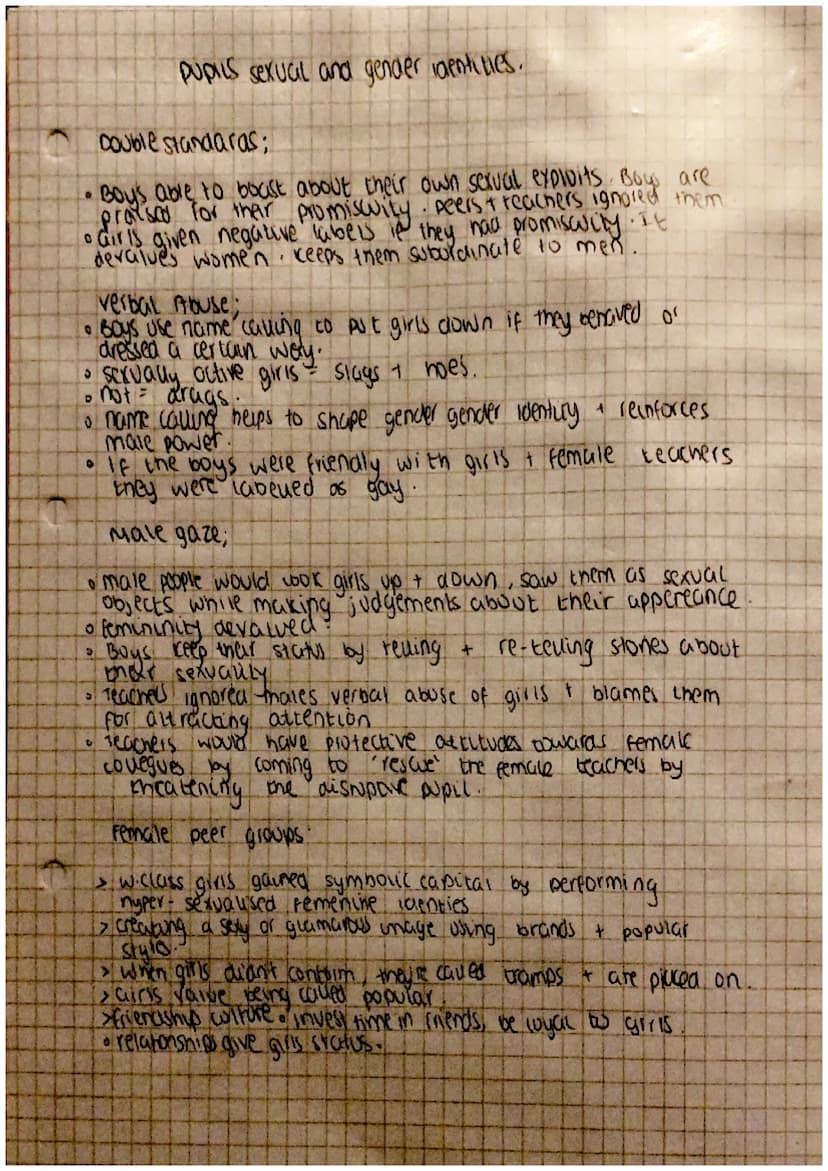 pupils sexual and gender identities.
Double standards;
• Boys able to boast about their own sexual exploits. Boys are
praised for their promiscuity. peers + teachers ignored them
• Girls given negative labels if they had promiscuity. It
devalues women. keeps them subordinate to men.
Verbal Abuse;
• Boys use name calling to put girls down if they behaved or
dressed a certain way.
• sexually active girls = slags + hoes.
• not = drags.
• name calling helps to shape gender gender identity + reinforces
male power.
• If the boys were friendly with girls + female teachers
they were labelled as gay.
Male gaze;
• male people would look girls up + down, saw them as sexual
objects while making judgements about their appereance.
• femininity devalued.
• Boys keep their status by telling + re-telling stories about
their sexuality
• Teachers ignored males verbal abuse of girls + blames them
for attracting attention
• Teachers would have protective attitudes towards female
collegues by coming to 'rescue' the female teachers by
threatening the disruptive pupil.
Female peer groups:
> w.class girls gained symbolic capital by performing
hyper-sexualised femenine identies
> creating a sexy or glamarous image using brands + popular
style.
> when girls didn't conform, they're called tramps + are picked on.
> Girls value being called popular.
> friendship culture • invest time in friends, be loyal to girls.
• relationships give girls status.